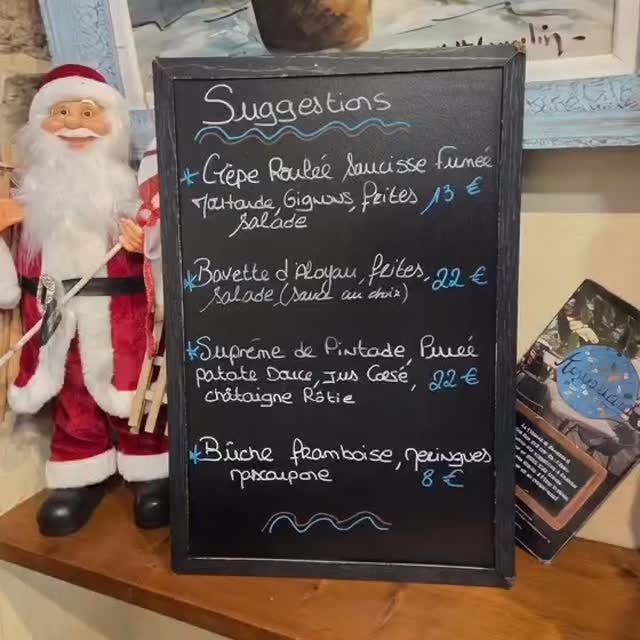 Suggestions
* Crêpe Roulée Saucisse Fumée
Moutarde, Oignons, frites 13 €
Salade
* Bavette d'Aloyau, frites, 22 €
Salade (sauce au choix)
* Suprême de Pintade, Purée
patate Douce, Jus Corsé, 22 €
châtaigne Rôtie
* Bûche framboise, meringues
mascarpone 8 €